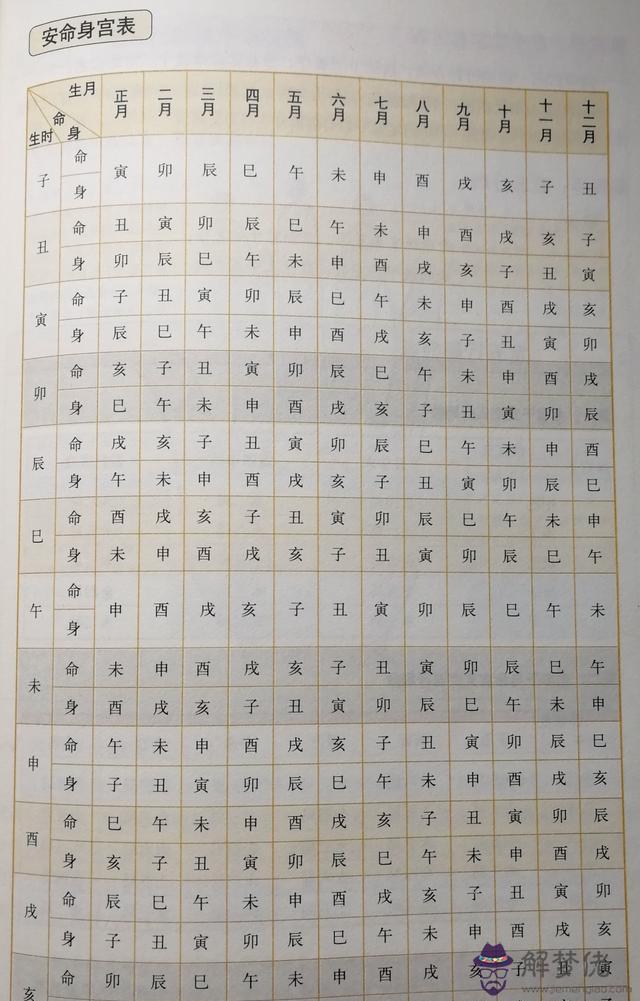 安命身宫表
生月 正月 二月 三月 四月 五月 六月 七月 八月 九月 十月 十一月 十二月
命
生时 身
子 命 身 寅 卯 辰 巳 午 未 申 酉 戌 亥 子 丑
丑 命 丑 寅 卯 辰 巳 午 未 申 酉 戌 亥 子
身 卯 辰 巳 午 未 申 酉 戌 亥 子 丑 寅
寅 命 子 丑 寅 卯 辰 巳 午 未 申 酉 戌 亥
身 辰 巳 午 未 申 酉 戌 亥 子 丑 寅 卯
卯 命 亥 子 丑 寅 卯 辰 巳 午 未 申 酉 戌
身 巳 午 未 申 酉 戌 亥 子 丑 寅 卯 辰
辰 命 戌 亥 子 丑 寅 卯 辰 巳 午 未 申 酉
身 午 未 申 酉 戌 亥 子 丑 寅 卯 辰 巳
巳 命 酉 戌 亥 子 丑 寅 卯 辰 巳 午 未 申
身 未 申 酉 戌 亥 子 丑 寅 卯 辰 巳 午
午 命 身 申 酉 戌 亥 子 丑 寅 卯 辰 巳 午 未
未 命 未 申 酉 戌 亥 子 丑 寅 卯 辰 巳 午
身 酉 戌 亥 子 丑 寅 卯 辰 巳 午 未 申
申 命 午 未 申 酉 戌 亥 子 丑 寅 卯 辰 巳
身 子 丑 寅 卯 辰 巳 午 未 申 酉 戌 亥
酉 命 巳 午 未 申 酉 戌 亥 子 丑 寅 卯 辰
身 亥 子 丑 寅 卯 辰 巳 午 未 申 酉 戌
戌 命 辰 巳 午 未 申 酉 戌 亥 子 丑 寅 卯
身 子 丑 寅 卯 辰 巳 午 未 申 酉 戌 亥
亥 命 卯 辰 巳 午 未 申 酉 戌 亥 子 丑 寅
解梦佬
www.jiemenglao.com